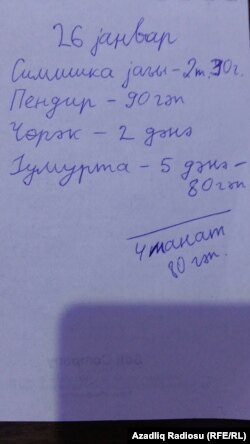 26 јанвар
Симишка јағы - 2м.30г.
Пендир - 90 гәп
Чөрәк - 2 дәнә
Јумурта - 5 дәнә -
80 гәп
4 манат
80 гәп.
Azadlıq Radiosu (RFE/RL)